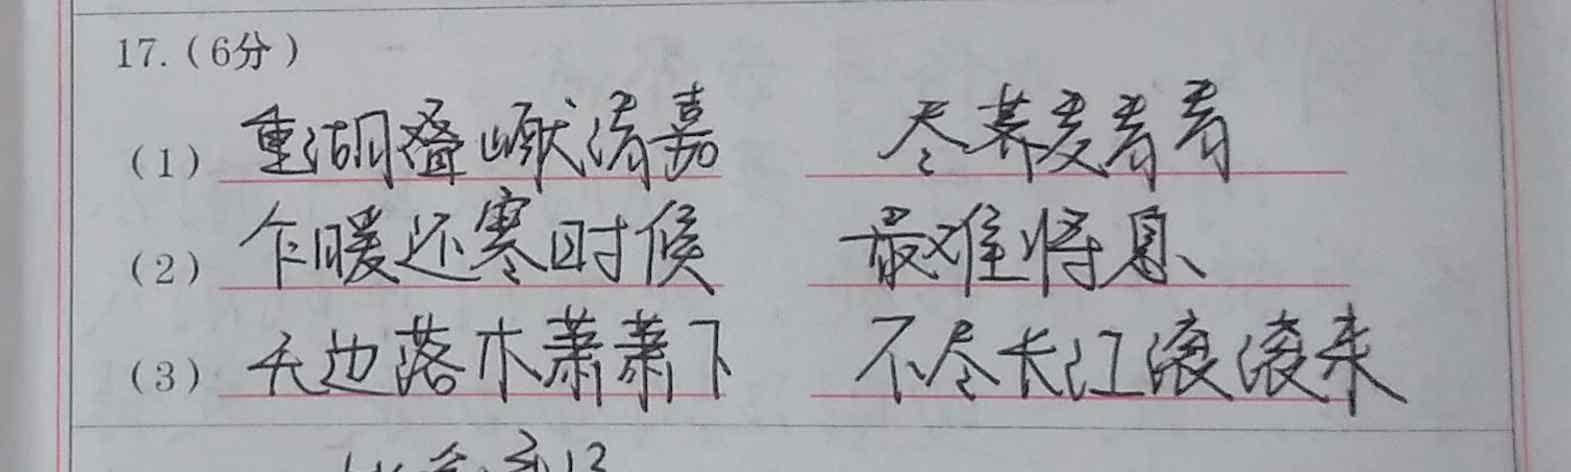 17.(6分)
(1) 重湖叠巘清嘉 尽荠麦青青
(2) 乍暖还寒时候 最难将息
(3) 无边落木萧萧下 不尽长江滚滚来